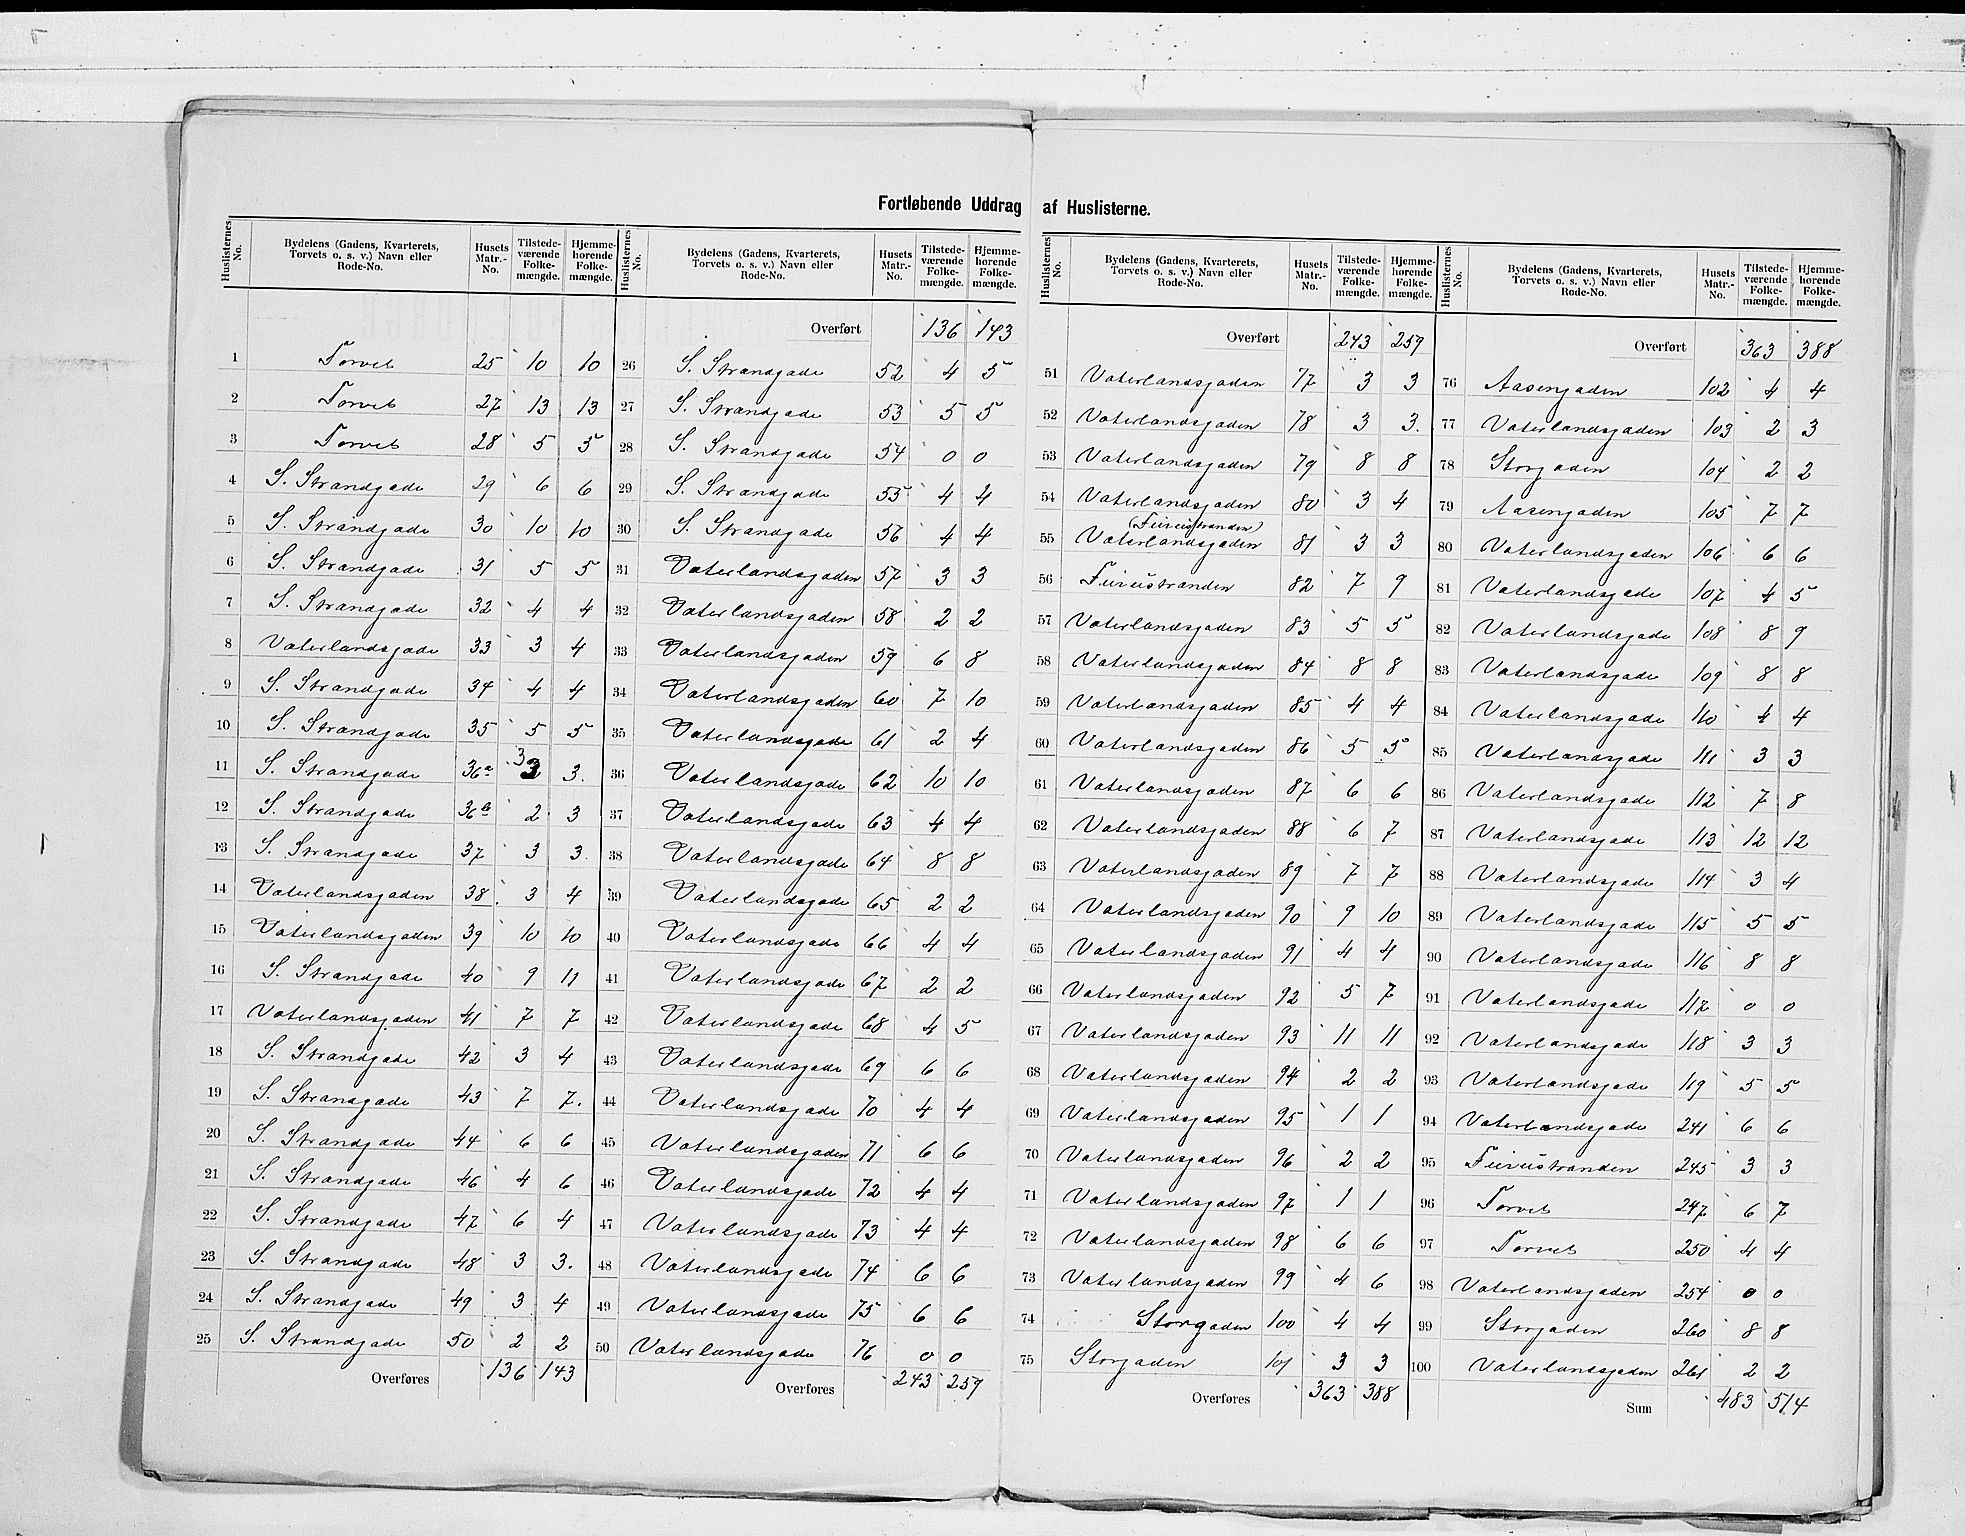 Fortløbende Uddrag af Huslisterne.
Huslisternes No. | Bydelens (Gadens, Kvarterets, Torvets o. s. v.) Navn eller Rode-No. | Husets Matr.-No. | Tilstedeværende Folkemængde. | Hjemmehørende Folkemængde.
1 Torvet 25 10 10
2 Torvet 27 13 13
3 Torvet 28 5 5
4 S. Strandgade 29 6 6
5 S. Strandgade 30 10 10
6 S. Strandgade 31 5 5
7 S. Strandgade 32 4 4
8 Vaterlandsgade 33 3 4
9 S. Strandgade 34 4 4
10 S. Strandgade 35 5 5
11 S. Strandgade 36a 3 3.
12 S. Strandgade 36b 2 3
13 S. Strandgade 37 3 3
14 Vaterlandsgaden 38 3 4
15 Vaterlandsgaden 39 10 10
16 S. Strandgade 40 9 11
17 Vaterlandsgaden 41 7 7
18 S. Strandgade 42 3 4
19 S. Strandgade 43 7 7.
20 S. Strandgade 44 6 6
21 S. Strandgade 46 4 6
22 S. Strandgade 47 6 4
23 S. Strandgade 48 3 3.
24 S. Strandgade 49 3 4
25 S. Strandgade 50 2 2
Overføres 136 143
Huslisternes No. | Bydelens (Gadens, Kvarterets, Torvets o. s. v.) Navn eller Rode-No. | Husets Matr.-No. | Tilstedeværende Folkemængde. | Hjemmehørende Folkemængde.
Overført 136 143
26 S. Strandgade 52 4 5
27 S. Strandgade 53 5 5
28 S. Strandgade 54 0 0
29 S. Strandgade 55 4 4
30 S. Strandgade 56 4 4
31 Vaterlandsgaden 57 3 3
32 Vaterlandsgaden 58 2 2
33 Vaterlandsgaden 59 6 8
34 Vaterlandsgaden 60 7 10
35 Vaterlandsgade 61 2 4
36 Vaterlandsgade 62 10 10
37 Vaterlandsgade 63 4 4
38 Vaterlandsgade 64 8 8
39 Vaterlandsgade 65 2 2
40 Vaterlandsgade 66 4 4
41 Vaterlandsgade 67 2 2
42 Vaterlandsgade 68 4 5
43 Vaterlandsgade 69 6 6
44 Vaterlandsgade 70 4 4
45 Vaterlandsgaden 71 6 6
46 Vaterlandsgade 72 4 4
47 Vaterlandsgade 73 4 4
48 Vaterlandsgade 74 6 6
49 Vaterlandsgade 75 6 6
50 Vaterlandsgade 76 0 0
Overføres 243 259
Huslisternes No. | Bydelens (Gadens, Kvarterets, Torvets o. s. v.) Navn eller Rode-No. | Husets Matr.-No. | Tilstedeværende Folkemængde. | Hjemmehørende Folkemængde.
Overført 243 259
51 Vaterlandsgaden 77 3 3
52 Vaterlandsgaden 78 3 3.
53 Vaterlandsgaden 79 8 8
54 Vaterlandsgaden 80 3 4
55 Vaterlandsgaden 81 3 3
56 82 7 9
57 Vaterlandsgaden 83 5 5
58 Vaterlandsgaden 84 8 8
59 Vaterlandsgaden 85 4 4
60 Vaterlandsgaden 86 5 5
61 Vaterlandsgaden 87 6 6
62 Vaterlandsgaden 88 6 7
63 Vaterlandsgaden 89 7 7
64 Vaterlandsgaden 90 9 10
65 Vaterlandsgaden 91 4 4
66 Vaterlandsgaden 92 5 7
67 Vaterlandsgaden 93 11 11
68 Vaterlandsgaden 94 2 2
69 Vaterlandsgaden 95 1 1
70 Vaterlandsgaden 96 2 2
71 Vaterlandsgaden 97 1 1
72 Vaterlandsgaden 98 6 6
73 Vaterlandsgaden 99 4 6
74 Storgaden 100 4 4
75 Storgaden 101 3 3
Overføres 363 388
Huslisternes No. | Bydelens (Gadens, Kvarterets, Torvets o. s. v.) Navn eller Rode-No. | Husets Matr.-No. | Tilstedeværende Folkemængde. | Hjemmehørende Folkemængde.
Overført 363 388
76 Aasengaden 102 4 4
77 Vaterlandsgaden 103 2 3
78 Storgaden 104 2 2
79 Aasengaden 105 7 7
80 Vaterlandsgaden 106 6 6
81 Vaterlandsgade 107 4 5
82 Vaterlandsgade 108 8 9
83 Vaterlandsgade 109 8 8
84 Vaterlandsgade 110 4 4
85 Vaterlandsgade 111 3 3
86 Vaterlandsgade 112 7 8
87 Vaterlandsgade 113 12 12
88 Vaterlandsgade 114 3 4
89 Vaterlandsgade 115 5 5
90 Vaterlandsgade 116 8 8
91 Vaterlandsgade 117 0 0
92 Vaterlandsgade 118 3 3
93 Vaterlandsgade 119 5 5
94 Vaterlandsgade 241 6 6
95 245 3 3
96 Torvet 247 6 7
97 Torvet 250 4 4
98 Vaterlandsgaden 254 0 0
99 Storgaden 260 8 8
100 Vaterlandsgaden 261 2 2
Sum 483 514